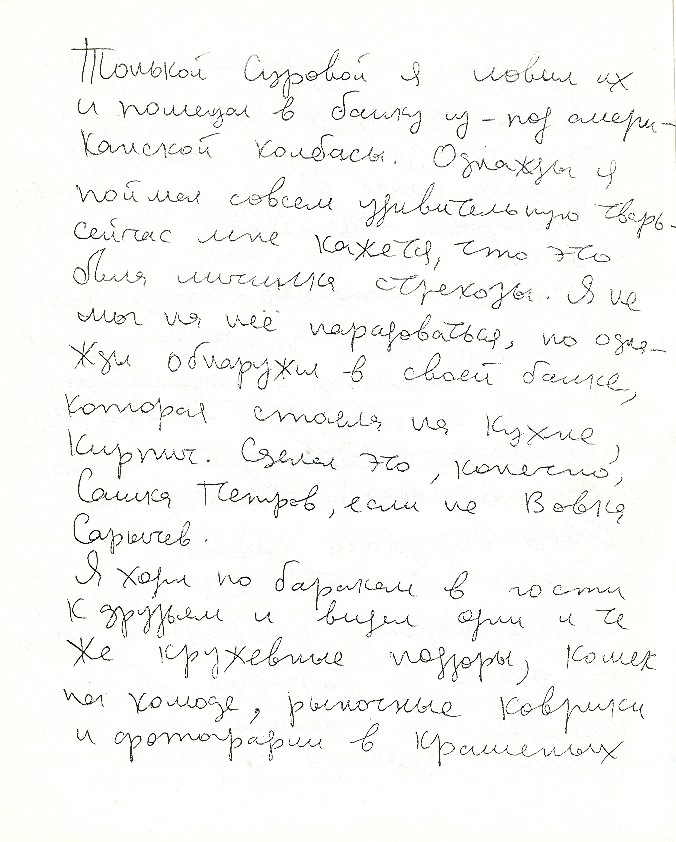 Толькой Суровой я ловил их
и помещал в банку из-под амери-
канской колбасы. Однажды я
поймал совсем удивительную тварь-
сейчас мне кажется, что это
была личинка стрекозы. Я не
мог на неё нарадоваться, но одна-
жды обнаружил в своей банке,
которая стояла на кухне,
кирпич. Сделал это, конечно,
Сашка Петров, если не Вовка
Сарычев.
Я ходил по баракам в гости
к друзьям и видел одни и те
же кружевные подзоры, кошек
на комоде, рыночные коврики
и фотографии в крашеных